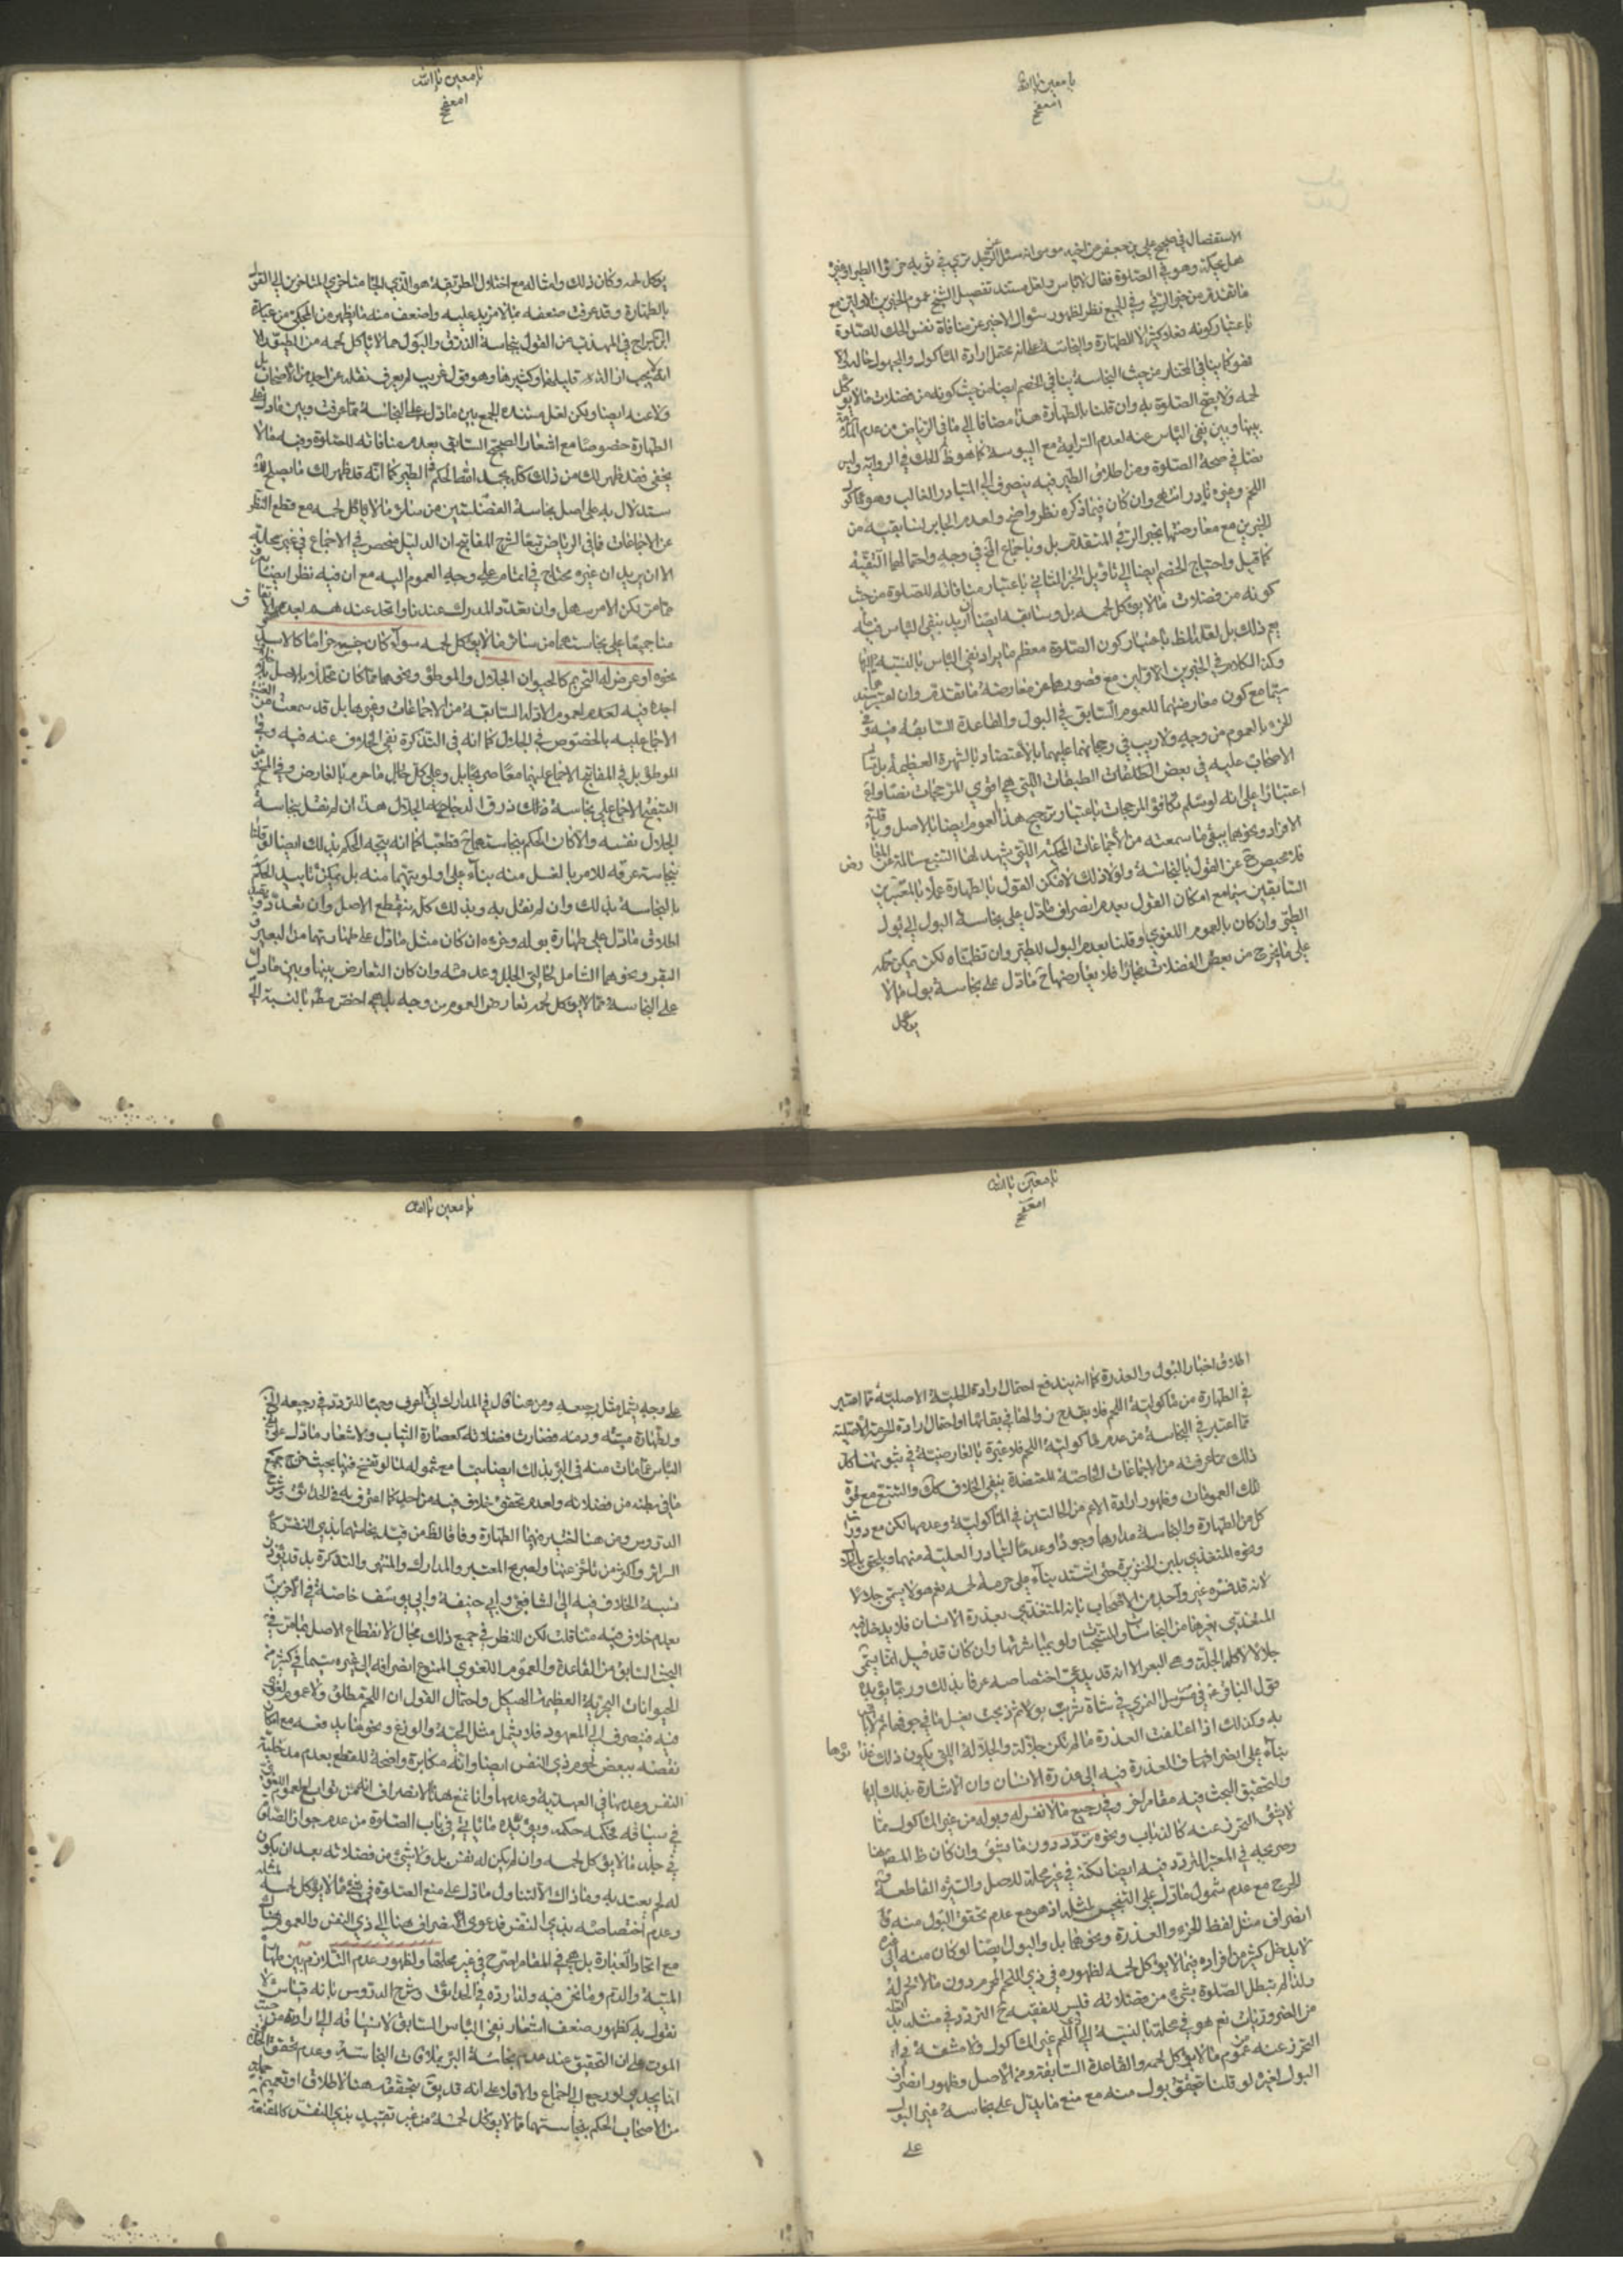 يا معين يا الله
الاستفصال في صحيح علي بن جعفر عن اخيه موسى انه سئل عن الرجل يرى في ثوبه خرؤ الطير او غيره
هل يحكه وهو في الصلوة فقال لا باس ولعل مستند تفصيل الشيخ عموم الخبرين الاولين مع
ما تقدم من خبر الزقي وفي الجميع نظر لظهور سئوال الاخير عن منافاة نفس الحك للصلوة
باعتبار كونه فعلا كثيرا لا للطهارة والنجاسة على انه يحتمل ارادة الماكول والمجهول حاله والا
فهو كما ينافي المختار من حيث النجاسة ينافي الخصم ايضا من حيث كونه من فضلات ما لا يؤكل
لحمه ولا يصح الصلوة به وان قلنا بالطهارة هذا مضافا الى ما في الرياض من عدم الملازمة
بينها وبين نفي الباس عنه لعدم السراية مع اليبوسة كما هو ظ تلك في الرواية وليس
نصا في صحة الصلوة ومن اطلاق الطير فيه ينصرف الى المتبادر الغالب وهو مأكول
اللحم وغيره نادر انتهى وان كان فيما ذكره نظر واضح ولعدم الجابر لسابقيه من
الخبرين مع معارضتها بخبر الزقي المتقدم بل وباجماع الخ في وجه واحتمالهما التقية
كما قيل واحتياج الخصم ايضا الى تاويل الخبر الثاني باعتبار منافاته للصلوة من حيث
كونه من فضلات ما لا يؤكل لحمه بل وسابقه ايضا ان اريد بنفي الباس فيه ما
يعم ذلك بل لعله الظ باعتبار كون الصلوة معظم ما يراد نفي الباس بالنسبة اليها
وكذا الكلام في الخبرين الاولين مع قصورهما عن معارضة ما تقدم وان لم يستند
سيما مع كون معارضهما للعموم السابق في البول والقاعدة السابقة فيه وفي
الخرء بالعموم من وجه ولا ريب في رجحانهما عليهما بالاعتضاد بالشهرة العظيمة بل
الاصحاب عليه في بعض الطبقات التي هي اقوى المرجحات نصا و
اعتبارا على انه لو سلم تكافؤ المرجحات باعتبار ترجيح هذا العموم ايضا بالاصل و
الافراد ونحوهما يبقى ما سمعته من الاجماعات المحكية التي يشهد لها التتبع سالمة عن المعا رض
فلا محيص ح عن القول بالنجاسة ولولا ذلك لامكن القول بالطهارة عملا بالمعتبرين
السابقين سيما مع امكان القول بعدم انصراف ما دل على نجاسة البول الى بول
الطير وان كان بالعموم اللغوي او قلنا بعدم البول للطير وان نظمناه لكن يمكن حمله
على ما يخرج من بعض الفضلات مجازا فلا يعارضها ح ما دل على نجاسة بول ما لا
يؤكل
يا معين يا الله
يؤكل لحمه وكان ذلك وامثاله مع اختلال الطريقة هو الذي الجأ متاخري المتاخرين الى القول
بالطهارة وقد عرفت ضعفه بما لا مزيد عليه واضعف منه ما يظهر من المحكي من عبارة
ابن البراج في المهذب من القول بنجاسة الذرق والبول مما لا يؤكل لحمه من الطير الا
انه لا يجب ازالة قليلها وكثيرها وهو قول غريب لم يعرف نقله عن احد من الاصحاب بل
ولا عنه ايضا ولكن لعل مستنده الجمع بين ما دل على النجاسة مما عرفت وبين ما دل على
الطهارة خصوصا مع اشعار الصحيح السابق بعدم منافاته للصلوة وفيه ما لا
يخفى فقد ظهر لك من ذلك كله بحمد الله الحكم في الطير كما انه قد ظهر لك ما يصلح للا
ستدلال به على اصل نجاسة الفضلتين من سائر ما لا يؤكل لحمه مع قطع النظر
عن الاجماعات فما في الرياض تبعا لشرح المفاتيح ان الدليل منحصر في الاجماع في غير محله
الا ان يريد ان غيره محتاج في اتمامه على وجه العموم اليه مع ان فيه نظرا ايضا يعرف
مما مر لكن الامر سهل وان تعدد المدرك عندنا واتحد عندهم بعد الاتفاق
منا جميعا على نجاستهما من سائر ما لا يؤكل لحمه سواء كان جنسه حراما كالاسد
ونحوه او عرض له التحريم كالحيوان الجلال والموطوء ونحوهما مما كان محللا بالاصل
اجده فيه لعدم لعموم الادلة السابقة من الاجماعات وغيرها بل قد سمعت من الغنية
الاجماع عليه بالخصوص في الجلال كما انه في التذكرة نفي الخلاف عنه فيه وفي
الموطوء بل في المفاتيح الاجماع عليهما معا صريحا بل وعلى كل حال ما حرم بالعارض وفي المخ عن
التنقيح الاجماع على نجاسة ذلك ذرق الدجاجة الجلال هذا ان لم نقل بنجاسة
الجلال نفسه والا كان الحكم بنجاستهما ح قطعيا كما انه يتجه الحكم بذلك ايضا لو قلنا
بنجاسة عرقه للامر بالغسل منه بناء على اولويتهما منه بل يمكن تاييد الحكم
بالنجاسة بذلك وان لم نقل به وبذلك كله ينقطع الاصل وان تعدد و يقيد
اطلاق ما دل على طهارة بوله وخرءه ان كان مثل ما دل على طهارتهما من البعير و
البقر ونحوهما الشامل لحالتي الجلل وعدمه وان كان التعارض بينها وبين ما دل
على النجاسة مما لا يؤكل لحمه تعارض العموم من وجه بل هي اخص مط بالنسبة الى
يا معين يا الله
اطلاق اخبار البول والعذرة كما انه يندفع احتمال ارادة الحلية الاصلية مما اعتبر
في الطهارة من مأكولية اللحم فلا يقدح زوالها في بقائها او احتمال ارادة الحرمة الاصلية
مما اعتبر في النجاسة من عدم مأكولية اللحم فلا عبرة بالعارضية في ثبوتها كل
ذلك مما عرفته من الاجماعات الخاصة المعتضدة بنفي الخلاف كك والتتبع مع قوة
تلك العمومات وظهور ارادة الاعم من الحالتين في المأكولية وعدمها لكن مع دوران
كل من الطهارة والنجاسة مدارها وجودا وعدما لتبادر العلية منهما ويلحق بالجلال
ونحوه المتغذي بلبن الخنزيرة حتى اشتد بناء على حرمة لحمه نعم هو لا يسمى جلالا
لانه قد فسره غير واحد من الاصحاب بانه المتغذي بعذرة الانسان فلا يدخل فيه
المتغذي بغيرها من النجاسات والمتنجسات ولو بمباشرتها وان كان قد قيل انما يسمى
جلالا لاكله الجلة وهي البعر الا انه قد يدعى اختصاصه عرفا بذلك وربما يؤيده
قول الباقر ع في مرسل النميري في شاة شربت بولا ثم ذبحت يغسل ما في جوفها ثم لا باس
به وكذلك اذا اعتلفت العذرة ما لم تكن جلالة والجلالة التي يكون ذلك غذا ئها
بناء على انصراف العذرة فيه الى عذرة الانسان وان الاشارة بذلك اليها
ولتحقيق البحث فيه مقام اخر وفي رجيع ما لا نفس له وبوله من غير المأكول مما
لا يشق التحرز عنه كالذباب ونحوه تردد دون ما يشق وان كان ظ المصنف هنا
وصريحه في المعتبر التردد فيه ايضا لكنه في غير محله للاصل والسيرة القاطعة
للحرج مع عدم شمول ما دل على التنجيس لمثله اذ هو مع عدم تحقق البول منه
انصراف مثل لفظ الخرء والعذرة ونحوهما بل والبول ايضا لو كان منه الى غيره
لا يدخل كثير من افراده فيما لا يؤكل لحمه لظهوره في ذي اللحم المحرم دون ما لا لحم له
ولذا لم تبطل الصلوة بشيء من فضلاته فليس للفقيه ح التردد في مثله بل
من الضروريات نعم هو في محله بالنسبة الى ذي اللحم غير المأكول ولا مشقة في
التحرز عنه عموم ما لا يؤكل لحمه والقاعدة السابقة ومن الاصل وظهور انصراف
البول لغيره لو قلنا بتحقق بول منه مع منع ما يدل على نجاسة غير البول
على
يا معين يا الله
على وجه يشمل مثل رجيعه ومن هنا قال في المدارك اني لا اعرف وجها للتردد في رجيعه الخ
ولطهارة ميتته ودمه فصارت فضلاته كعصارة النبات ولاشعار ما دل على نفي
الباس عما مات منه في البئر بذلك ايضا سيما مع شموله لما لو تفسخ فيها بحيث خرج جميع
ما في بطنه من فضلاته ولعدم تحقق خلاف فيه من احد كما اعترف به في الحدائق وشرح
الدروس ومن هنا الخيرة فيهما الطهارة وفاقا لظ من قيد نجاستهما بذي النفس كما
السرائر واكثر من تاخر عنها ولصريح المعتبر والمدارك والمنتهى والتذكرة بل قد يؤذن
نسبة الخلاف فيه الى الشافعي وابي حنيفة وابي يوسف خاصة في الاخرين
بعدم خلاف فيه منا قلت لكن للنظر في جميع ذلك مجال لانقطاع الاصل بما مر في
البحث السابق من القاعدة والعموم اللغوي الممنوع انصرافه الى غيره سيما في كثير من
الحيوانات البحرية العظيمة الهيكل واحتمال القول ان اللحم مطلق ولا عموم لغوي
فيه فينصرف الى المعهود فلا يشمل مثل الحية والوزغ ونحوهما يدفعه مع امكان
نقضه ببعض لحوم ذي النفس ايضا وانه مكابرة واضحة للقطع بعدم مدخلية
النفس وعدمها في العهدية وعدمها وانا نمنع هذا الانصراف انه من توابع العموم اللغوي
في سياقه محكمه حكمه ويؤيده ما ياتي في باب الصلوة من عدم جواز الصلوة
في جلد ما لا يؤكل لحمه وان لم يكن له نفس بل ولا شيء من فضلاته بعد ان يكون
له لحم يعتد به وما ذاك الا لتناول ما دل على منع الصلوة في شيء ما لا يؤكل لحمه لمثله
وعدم اختصاصه بذي النفس فدعوى الانصراف هنا الى ذي النفس والعموم هناك
مع اتحاد العبارة بل هي في المقام اصرح في غير محلها ولظهور عدم التلازم بين طهارة
الميتة والدم وما نحن فيه ولذا رده في الحدائق وشرح الدروس بانه قياس لا
نقول به كظهور ضعف اشعار نفي الباس السابق لانسياقه الى ارادة من حيث
الموت على ان التحقيق عند عدم نجاسة البئر بملاقات النجاسة وعدم تحقق الخلاف
انما يجدي لو رجع الى اجماع والا فلا على انه قد يق بتحققه هنا لاطلاق او تعميم جماعة
من الاصحاب الحكم بنجاستهما مما لا يؤكل لحمه من غير تقييد بذي النفس كالمقنعة